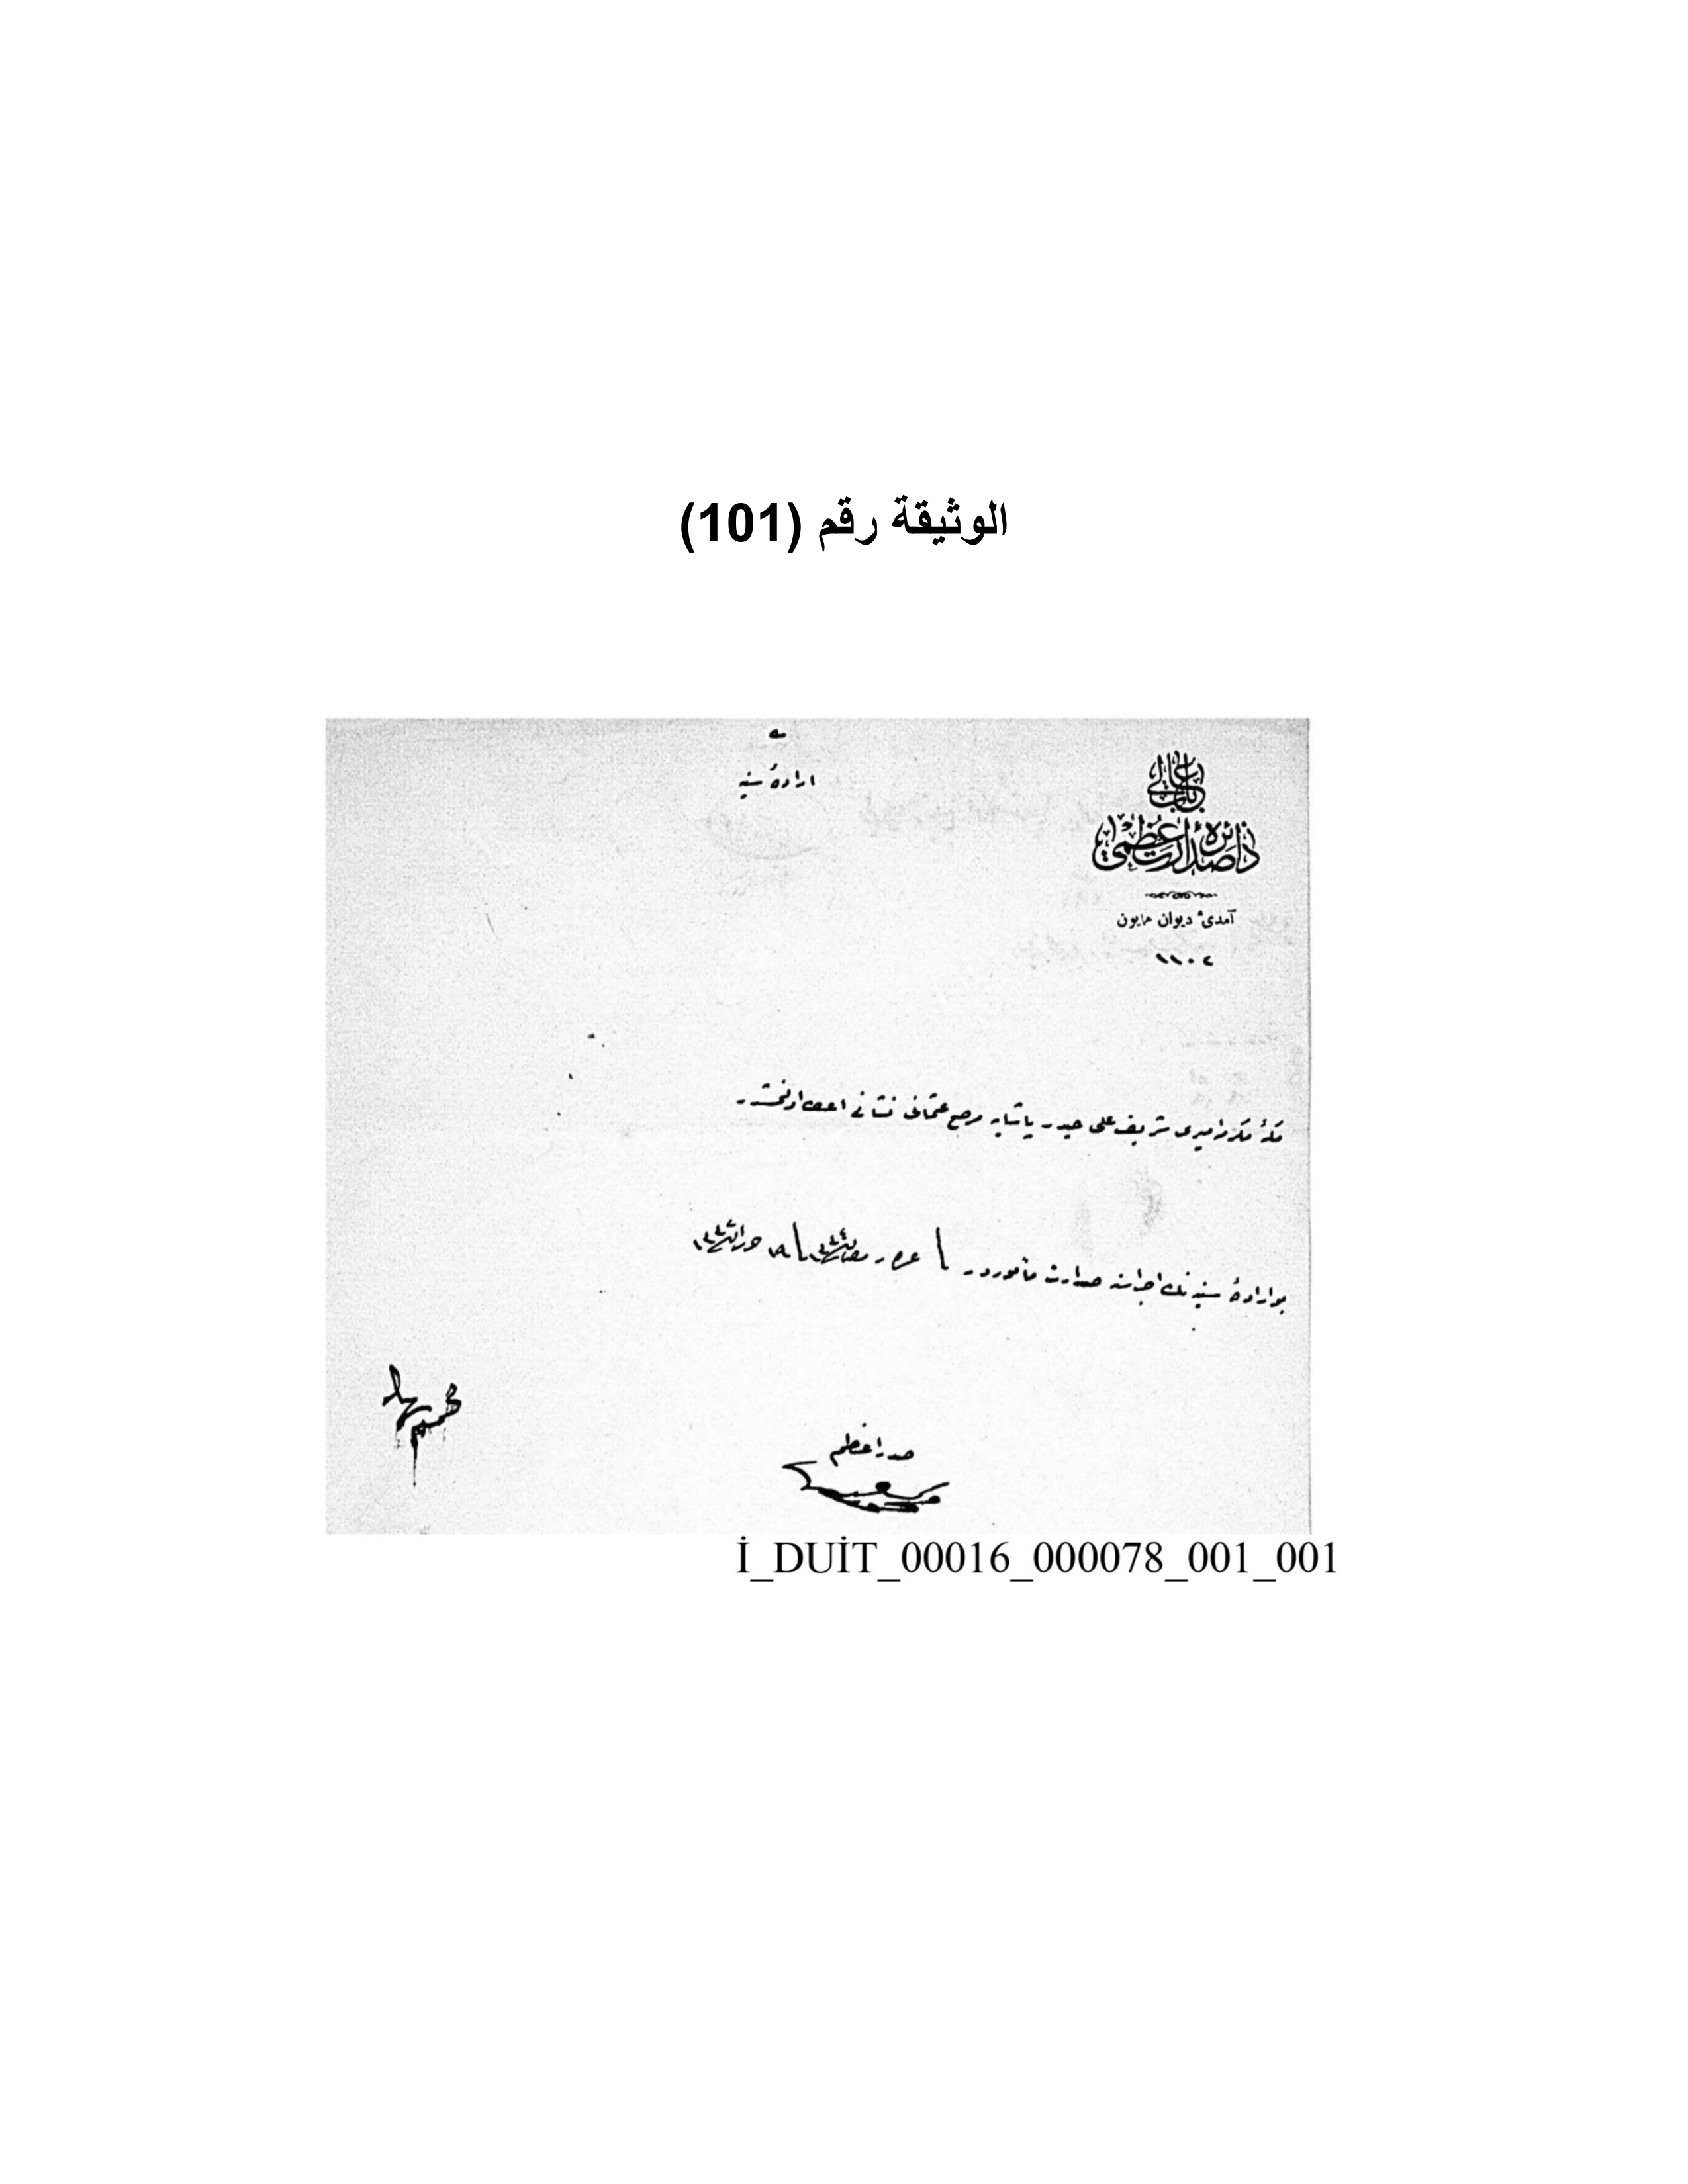 الوثيقة رقم (101)
باب عالی
دائرهٔ صدارت عظمی
آمدیٔ دیوان همایون
١١٠٢
ارادهٔ سنیه
مکهٔ مکرمه امیری شریف علی حیدر پاشایه مرصع عثمانی نشانی اعطا اولنمشدر
بو ارادهٔ سنیه نك اجراسنه صدارت مأموردر
رمضان
صدراعظم
İ_DUİT_00016_000078_001_001